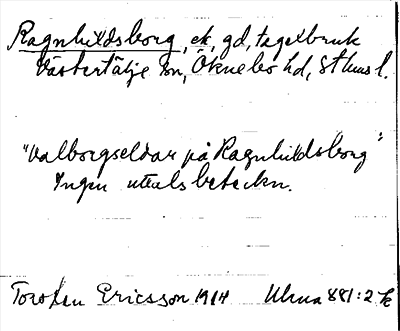 Ragnhildsborg, ek, gd, tegelbruk
Västertälje sn, Öknebo hd, Sthms l.
"Valborgseldar på Ragnhildsborg"
Ingen uttalsbeteckn.
Torsten Ericsson 1914 Ulma 881:2 k